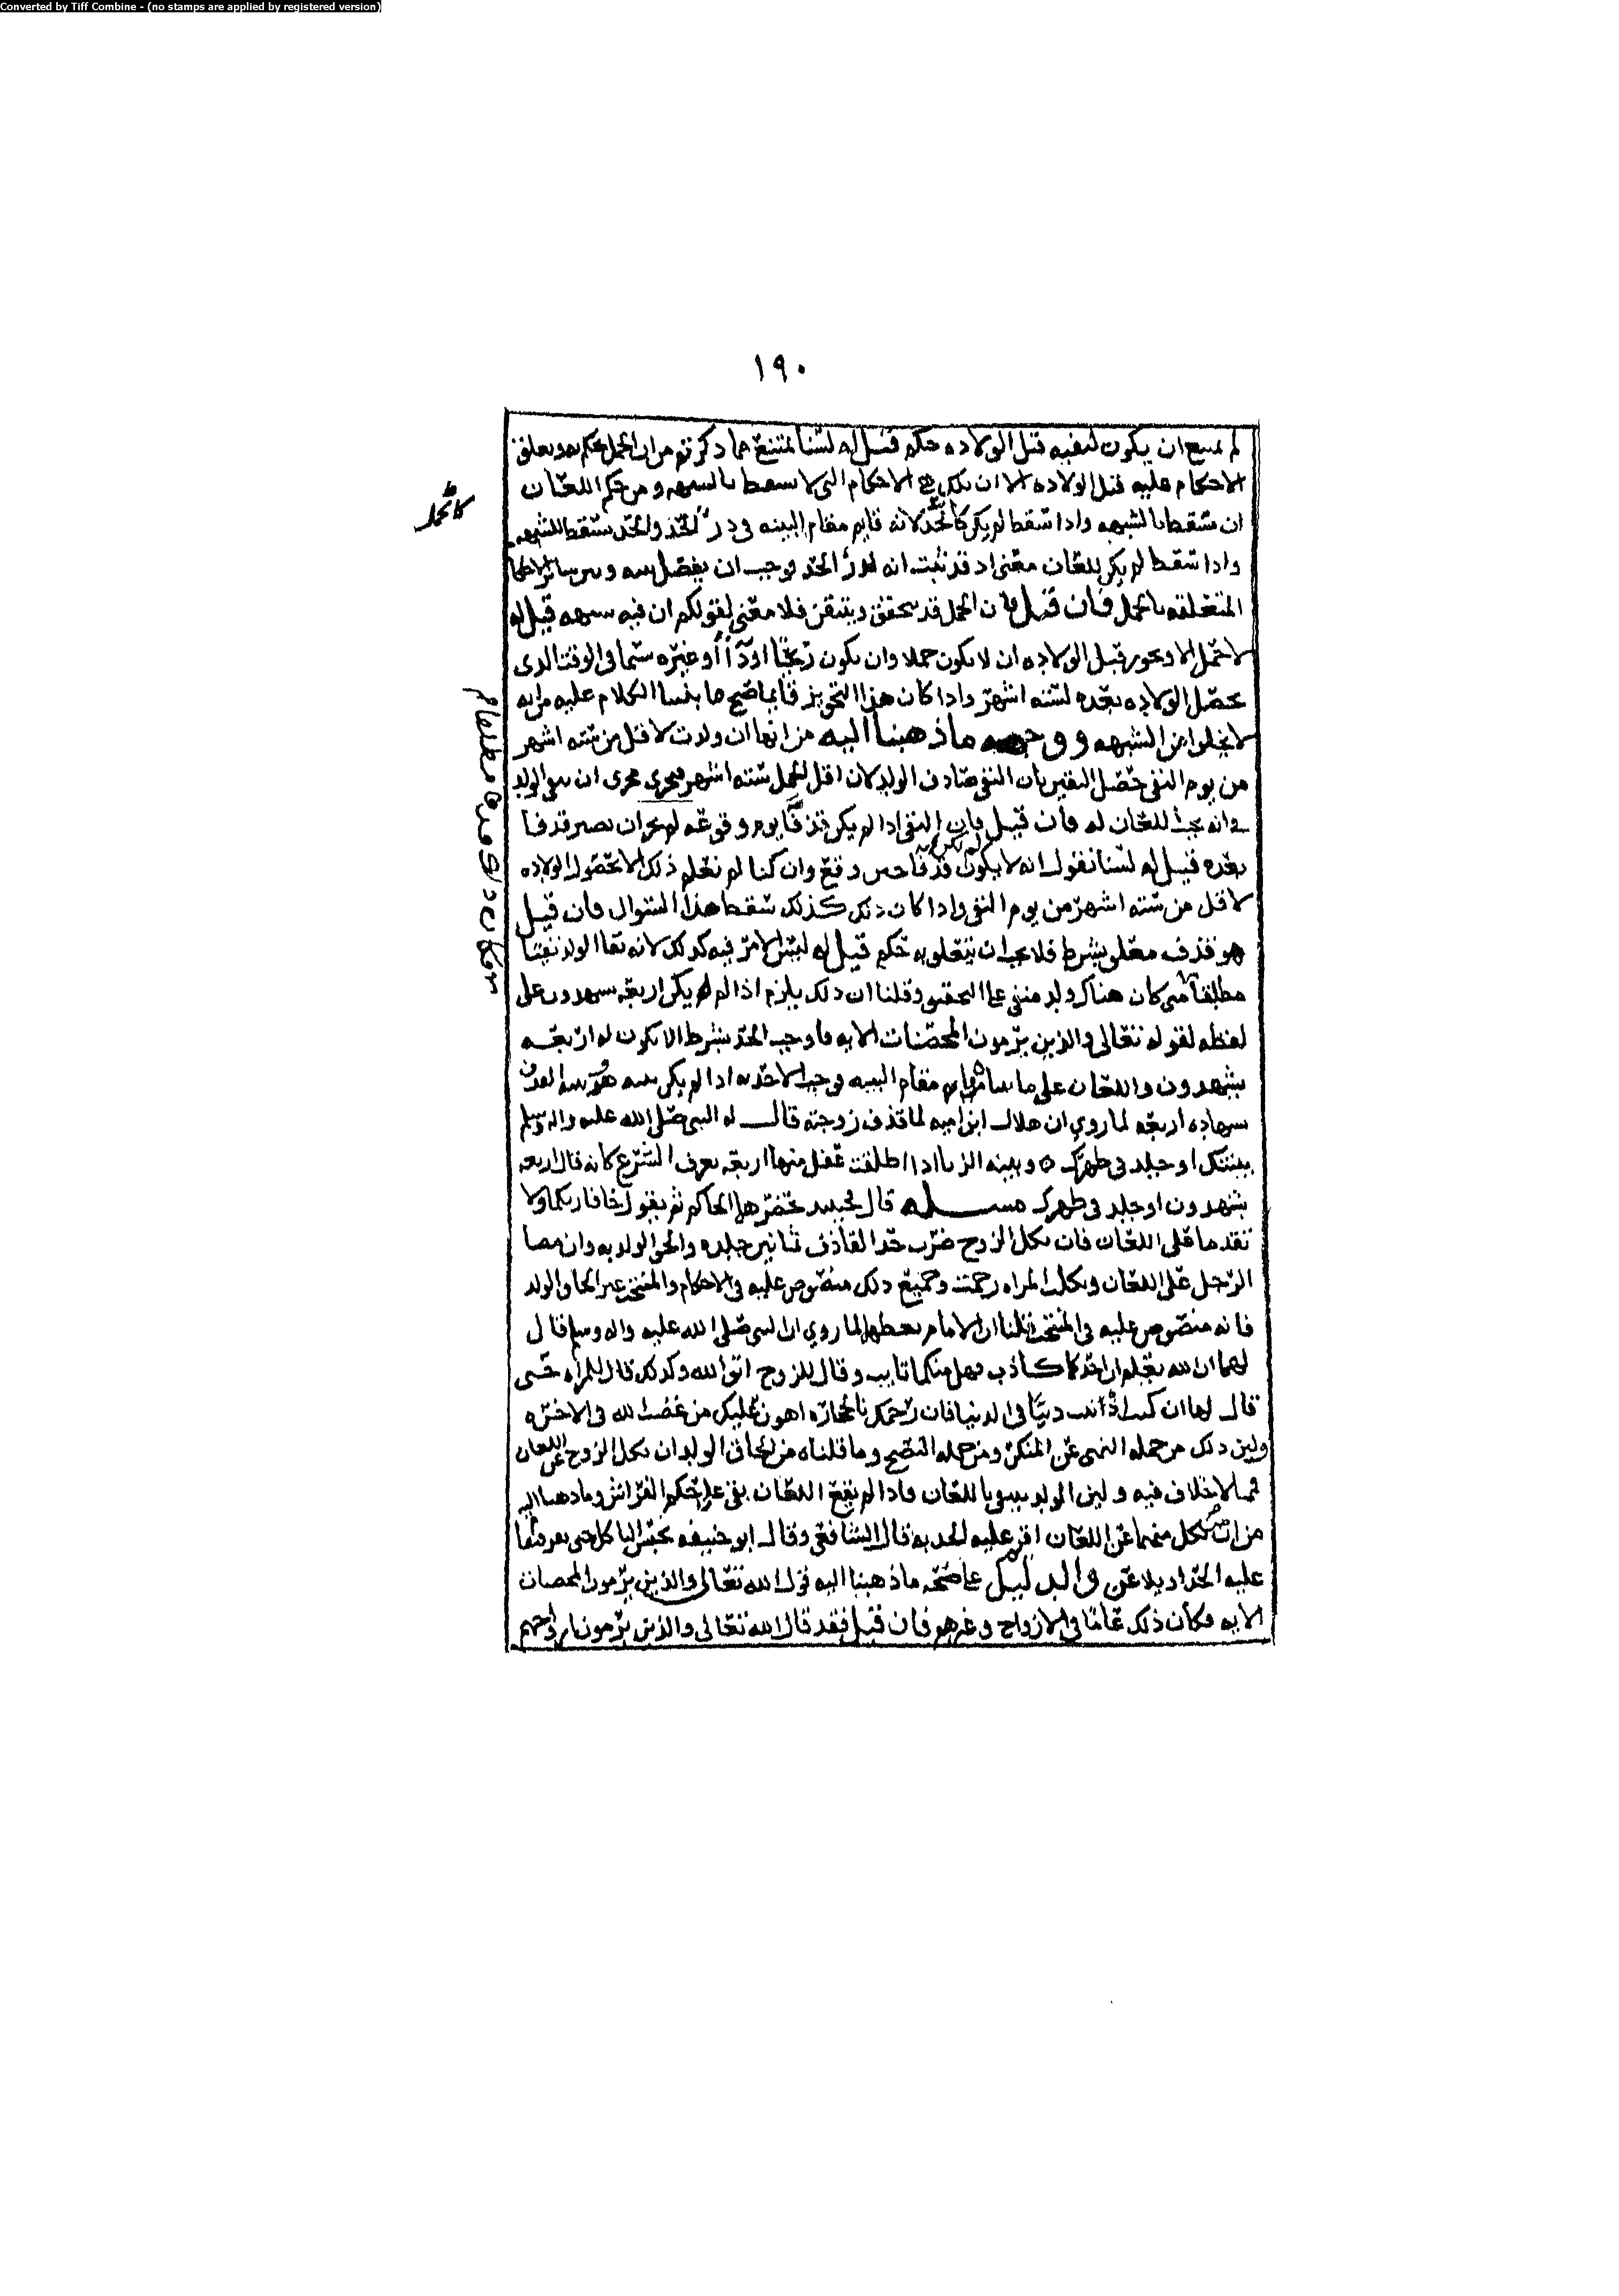 Converted by Tiff Combine - (no stamps are applied by registered version)
١٩٠
لم يمنع ان يكون لنفيه قبل الولاده حكم قيل له لسنا نمنع مما ذكرتم من ان الحمل يحكم به ويعلق
الاحكام عليه قبل الولاده الا ان تلك هي الاحكام التي لا تسقط بالشبهه ومن حكم اللعان
ان يسقط بالشبهه واذا سقط لم يكن كالحد لانه قايم مقام البينه في درء الحد والحد يسقط للشبهه
واذا سقط لم يكن للعان معنى اذ قد ثبت انه لدرء الحد فوجب ان يفصل بينه وبين سائر الاحكام
المتعلقه بالحمل فان قيل فان الحمل قد يتحقق ويتيقن فلا معنى لقولكم ان فيه شبهه قيل له
لا حمل الا ويجوز قبل الولاده ان لا يكون حملا وان يكون ريحًا او دآءً او غيره سيما في الوقت الذي
تحصل الولاده بعده لسته اشهر واذا كان هذا التجويز قايما صح ما بنينا الكلام عليه من انه
لا يخلوا من الشبهه ووجه ما ذهبنا اليه من انها ان ولدت لاقل من سته اشهر
من يوم النفي حصل اليقين بان النفي صادف الولد لان اقل الحمل سته اشهر فيجري مجرى ان نفي الولد
في انه يجب اللعان له فان قيل فان النفي اذا لم يكن قذفًا يوم وقوعه لم يجز ان يصير قذفا
بعده قيل له لسنا نقول انه لا يكون قذفا حين وقع وان كنا لم نعلم ذلك الا بحصول الولاده
لاقل من سته اشهر من يوم النفي واذا كان ذلك كذلك سقط هذا السوال فان قيل
هو قذف معلق بشرط فلا يجب ان يتعلق به حكم قيل له ليس الامر فيه كذلك لانه نفا الولد نفيًا
مطلقا متى كان هناك ولد منفي على التحقيق وقلنا ان ذلك يلزم اذا لم يكن اربعه يشهدون على
لفظه لقوله تعالى والذين يرمون المحصنات الايه فاوجب الحد بشرط الا يكون له اربعه
يشهدون واللعان على ما بيناه قايم مقام البينه
شهاده اربعه لما روي ان هلال ابن اميه لما قذف زوجته قال له النبي صلى الله عليه واله وسلم
بينتك او جلد في ظهرك ٥ وبينه الزنا اذا اطلقت عقل منها اربعه بعرف الشرع كانه قال اربعه
يشهدون او جلد في ظهرك مسـله قال يحيى يحضرهما الحاكم ثم يقول خافا ربكما ولا
تقدما على اللعان فان نكل الزوج ضرب حد القاذف ثمانين جلده والحق الولد به وان مضا
الرجل على اللعان ونكلت المراه رجمت وجميع ذلك منصوص عليه في الاحكام والمنتخب غير الحاق الولد
فانه منصوص عليه في المنتخب قلنا ان الامام يعظهما لما روي ان النبي صلى الله عليه واله وسلم قال
لهما ان الله يعلم ان احدكما كاذب فهل منكما تايب وقال للزوج اتق الله وكذلك قال للمراه حتى
قال لها ان كنت اذنبت ذنبًا في الدنيا فان رجمك بالحجاره اهون عليك من غضب الله في الاخره
ولين ذلك من جمله النهي عن المنكر ومن جمله النصح وما قلناه من الحاق الولد ان نكل الزوج عن اللعان
فما لا خلاف فيه ولين الولد ينتفي باللعان فاذا لم يقع اللعان بقي على حكم الفراش وما ذهبنا اليه
من ان من نكل منهما عن اللعان اقيم عليه الحد به قال الشافعي وقال ابو حنيفه يحبس الناكل حتى يعرف
عليه الحد او يلاعن والدليل على صحه ما ذهبنا اليه قول الله تعالى والذين يرمون المحصنات
الايه فكان ذلك عامًا في الازواج وغيرهم فان قيل فقد قال الله تعالى والذين يرمون ازواجهم